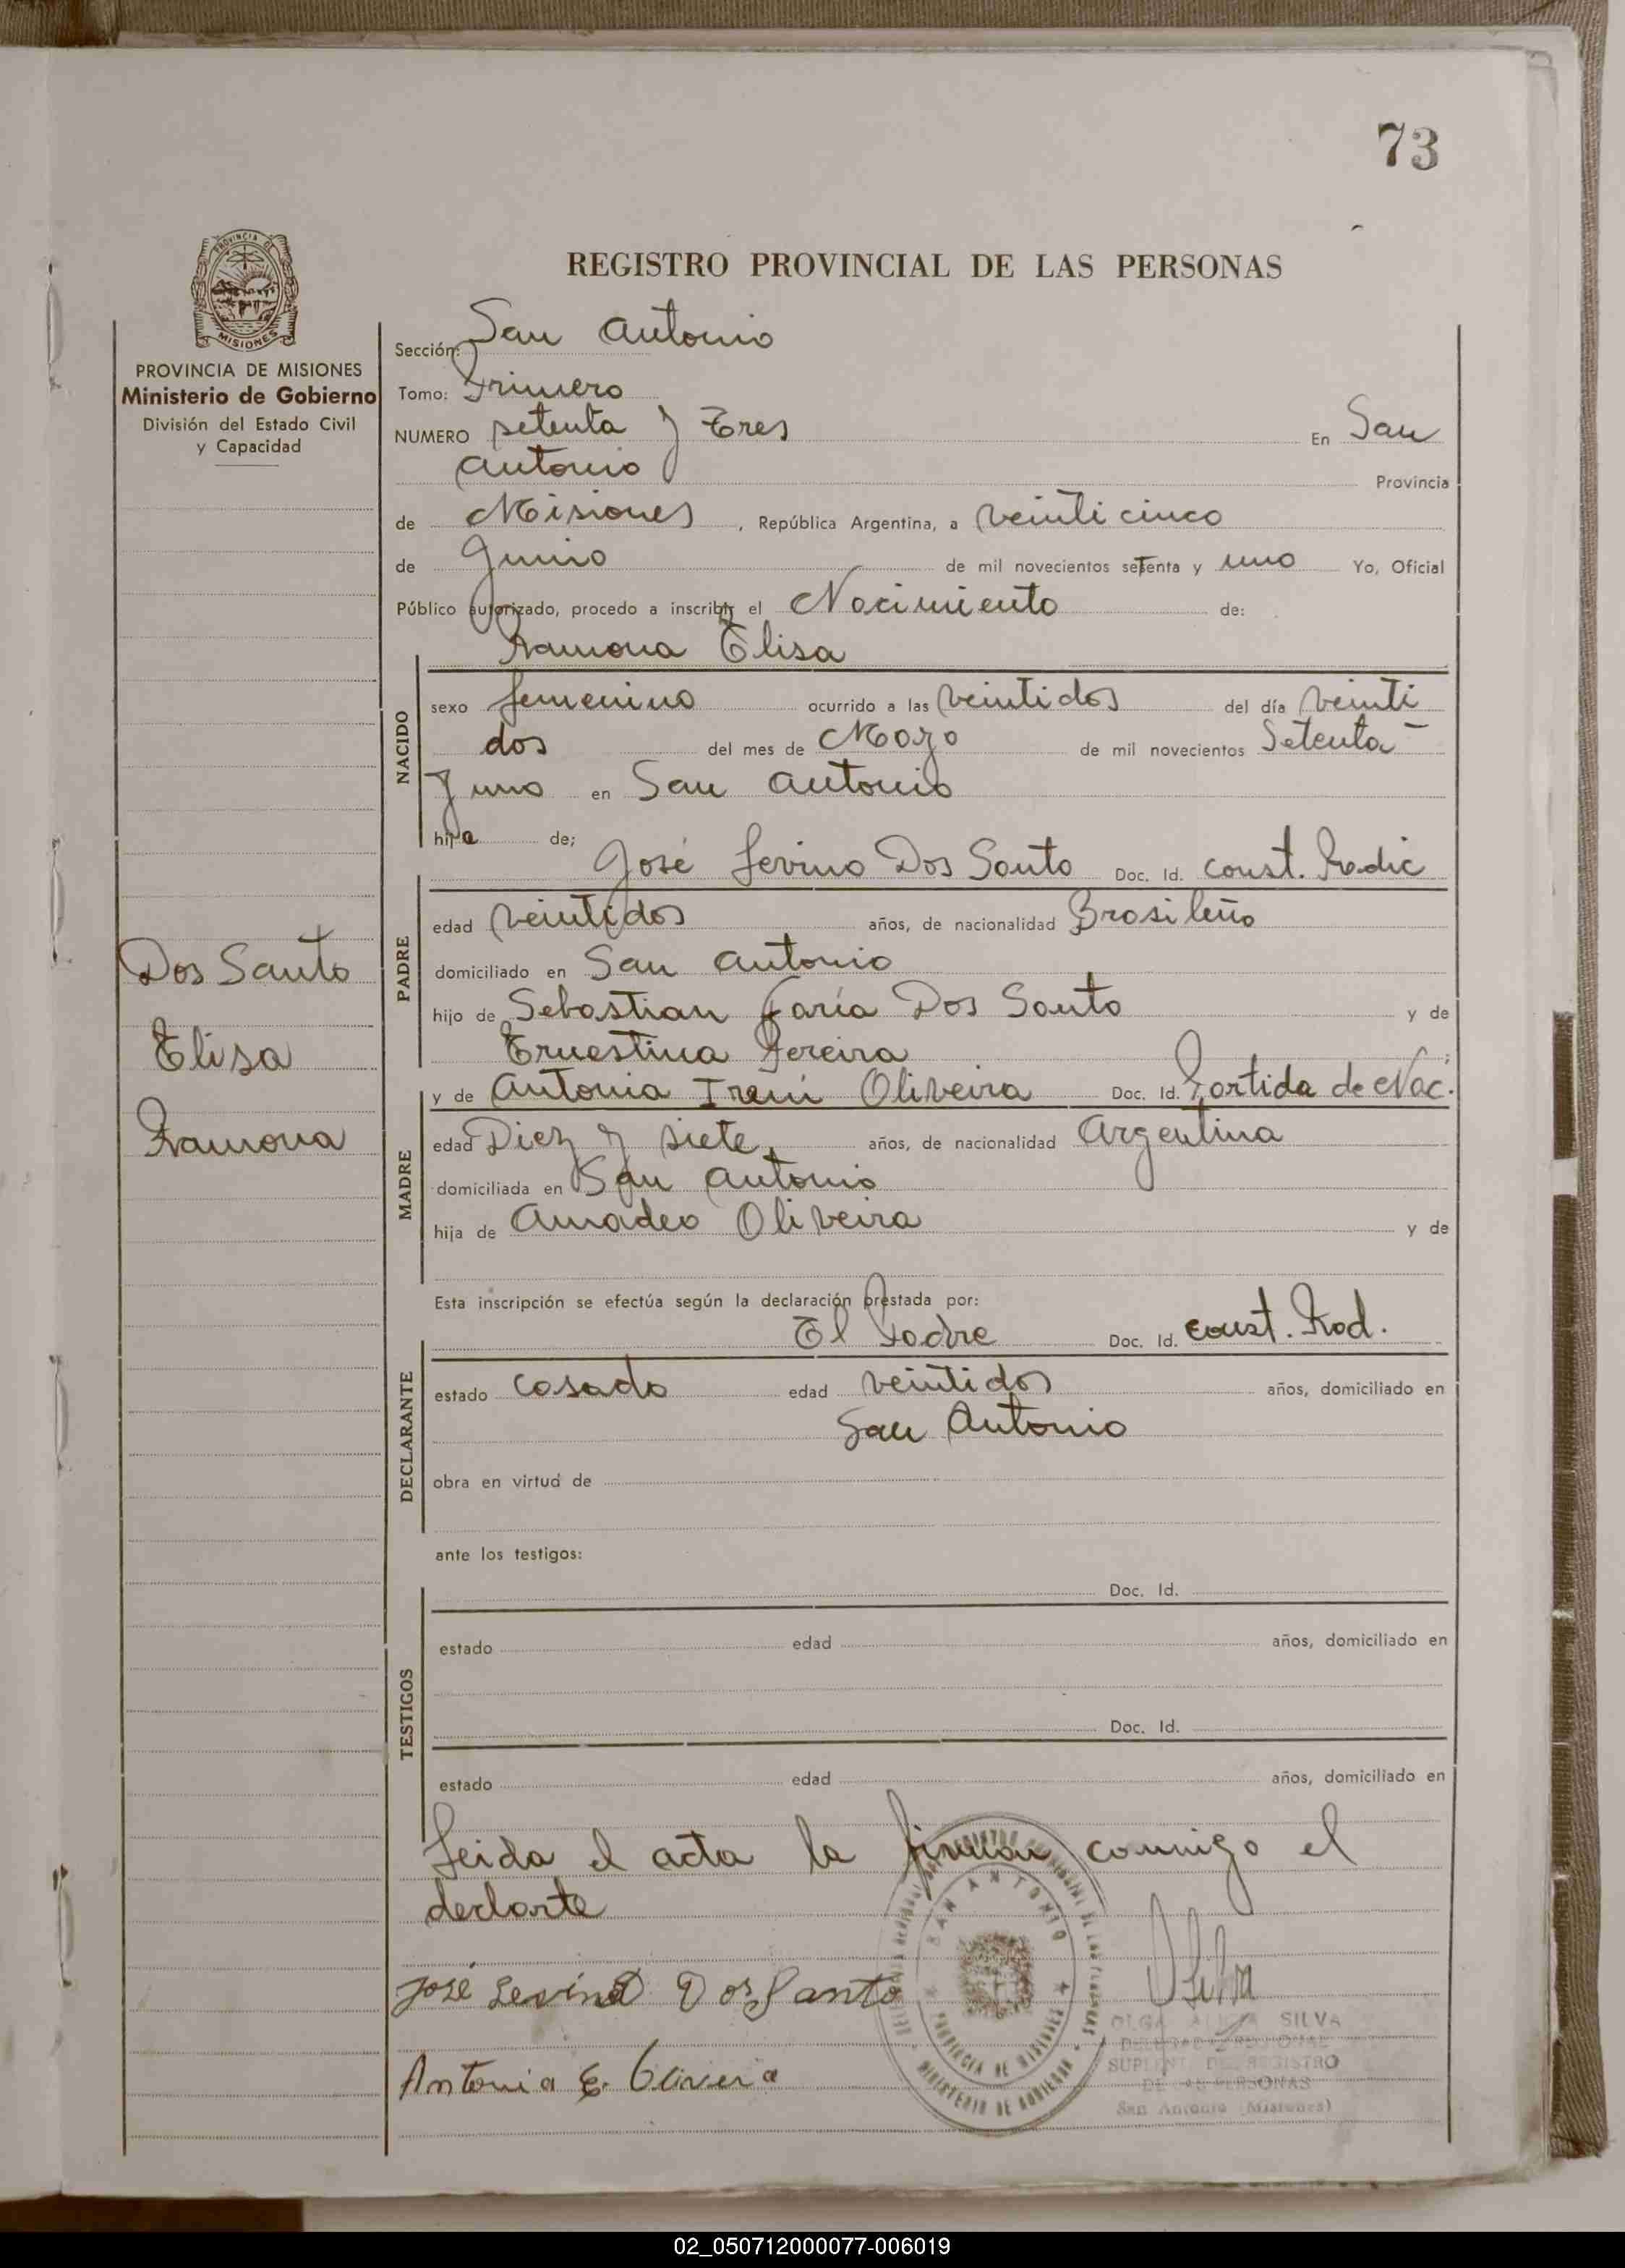 73
REGISTRO PROVINCIAL DE LAS PERSONAS
PROVINCIA DE
MISIONES
PROVINCIA DE MISIONES
Ministerio de Gobierno
División del Estado Civil
y Capacidad
Dos Santo
Elisa
Ramona
Sección: San Antonio
Tomo: Primero
NUMERO setenta y tres En San
Antonio Provincia
de Misiones, República Argentina, a veinticinco
de Junio de mil novecientos setenta y uno Yo, Oficial
Público autorizado, procedo a inscribir el Nacimiento de:
Ramona Elisa
NACIDO
sexo femenino ocurrido a las veintidos del día veinti
dos del mes de Mayo de mil novecientos Setenta
y uno en San Antonio
hija de;
José Levino Dos Santo Doc. Id. const. Radic
PADRE
edad veintidos años, de nacionalidad Brasileño
domiciliado en San Antonio
hijo de Sebastian Faria Dos Santo y de
Ernestina Pereira ;
y de Antonia Ireni Oliveira Doc. Id. Partida de Nac.
MADRE
edad Diez y siete años, de nacionalidad Argentina
domiciliada en San Antonio
hija de Amadeo Oliveira y de
Esta inscripción se efectúa según la declaración prestada por:
El Padre Doc. Id. const. Rad.
DECLARANTE
estado casado edad veintidos años, domiciliado en
San Antonio
obra en virtud de
ante los testigos:
Doc. Id.
TESTIGOS
estado edad años, domiciliado en
Doc. Id.
estado edad años, domiciliado en
Leida el acta la firman conmigo el
declarte
José Levino Dos Santo
Antonia E. Oliveira
SAN ANTONIO
PROVINCIA DE MISIONES
MINISTERIO DE GOBIERNO
OLGA ALICIA SILVA
DELEGADA REGIONAL
SUPLENTE DEL REGISTRO
DE LAS PERSONAS
San Antonio (Misiones)
02_050712000077-006019